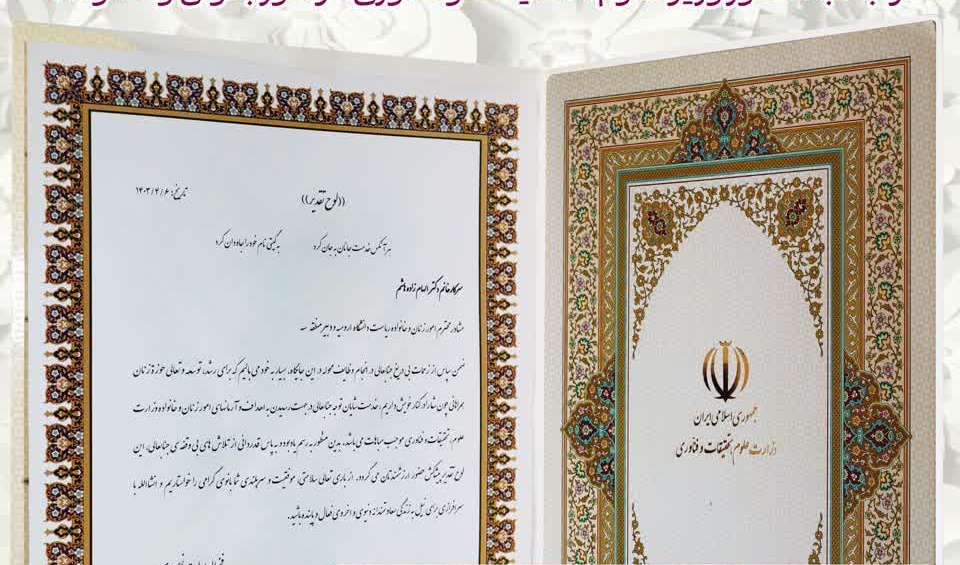 ((لوح تقدیر))
تاریخ: ۱۴۰۳/۴/۶
هر آنکس خدمت جانان به جان کرد به گیتی نام خود را جاودان کرد
سرکار خانم دکتر الهام زاده هاشم
مشاور محترم امور زنان و خانواده ریاست دانشگاه ارومیه و دبیر منطقه سه
ضمن سپاس از زحمات بی دریغ جنابعالی در انجام وظایف محوله در این جایگاه، بسیار به خود می بالیم که برای رشد، توسعه و تعالی حوزه زنان
همراهانی چون شما را در کنار خویش داریم، خدمت شایان توجه جنابعالی در جهت رسیدن به اهداف و آرمانهای امور زنان و خانواده وزارت
علوم، تحقیقات و فناوری موجب مباهات می باشد. بدین منظور به رسم یادبود و به پاس قدردانی از تلاش های بی وقفه ی جنابعالی، این
لوح تقدیر پیشکش حضور ارزشمندتان می گردد. از باری تعالی سلامتی، موفقیت و سربلندی شما بانوی گرامی را خواستاریم و انشاالله با
سرافرازی برای نیل به زندگی سعادتمندانه دنیوی و اخروی فعال و پاینده باشید.
جمهوری اسلامی ایران
وزارت علوم، تحقیقات و فناوری